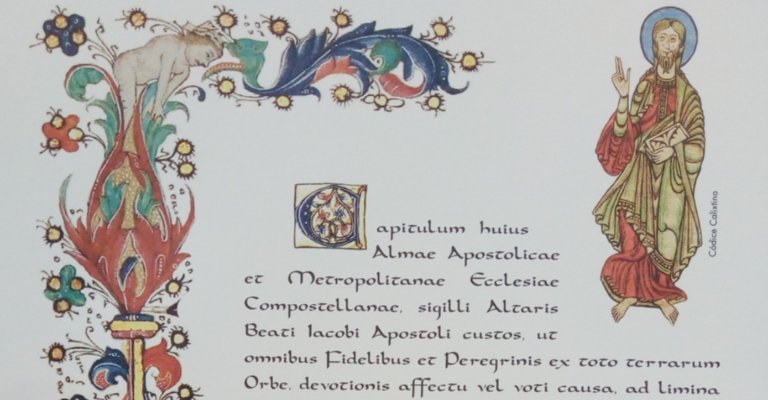 Capitulum huius
Almae Apostolicae
et Metropolitanae Ecclesiae
Compostellanae, sigilli Altaris
Beati Iacobi Apostoli custos, ut
omnibus Fidelibus et Peregrinis ex toto terrarum
Orbe, devotionis affectu vel voti causa, ad limina
Códice Calixtino